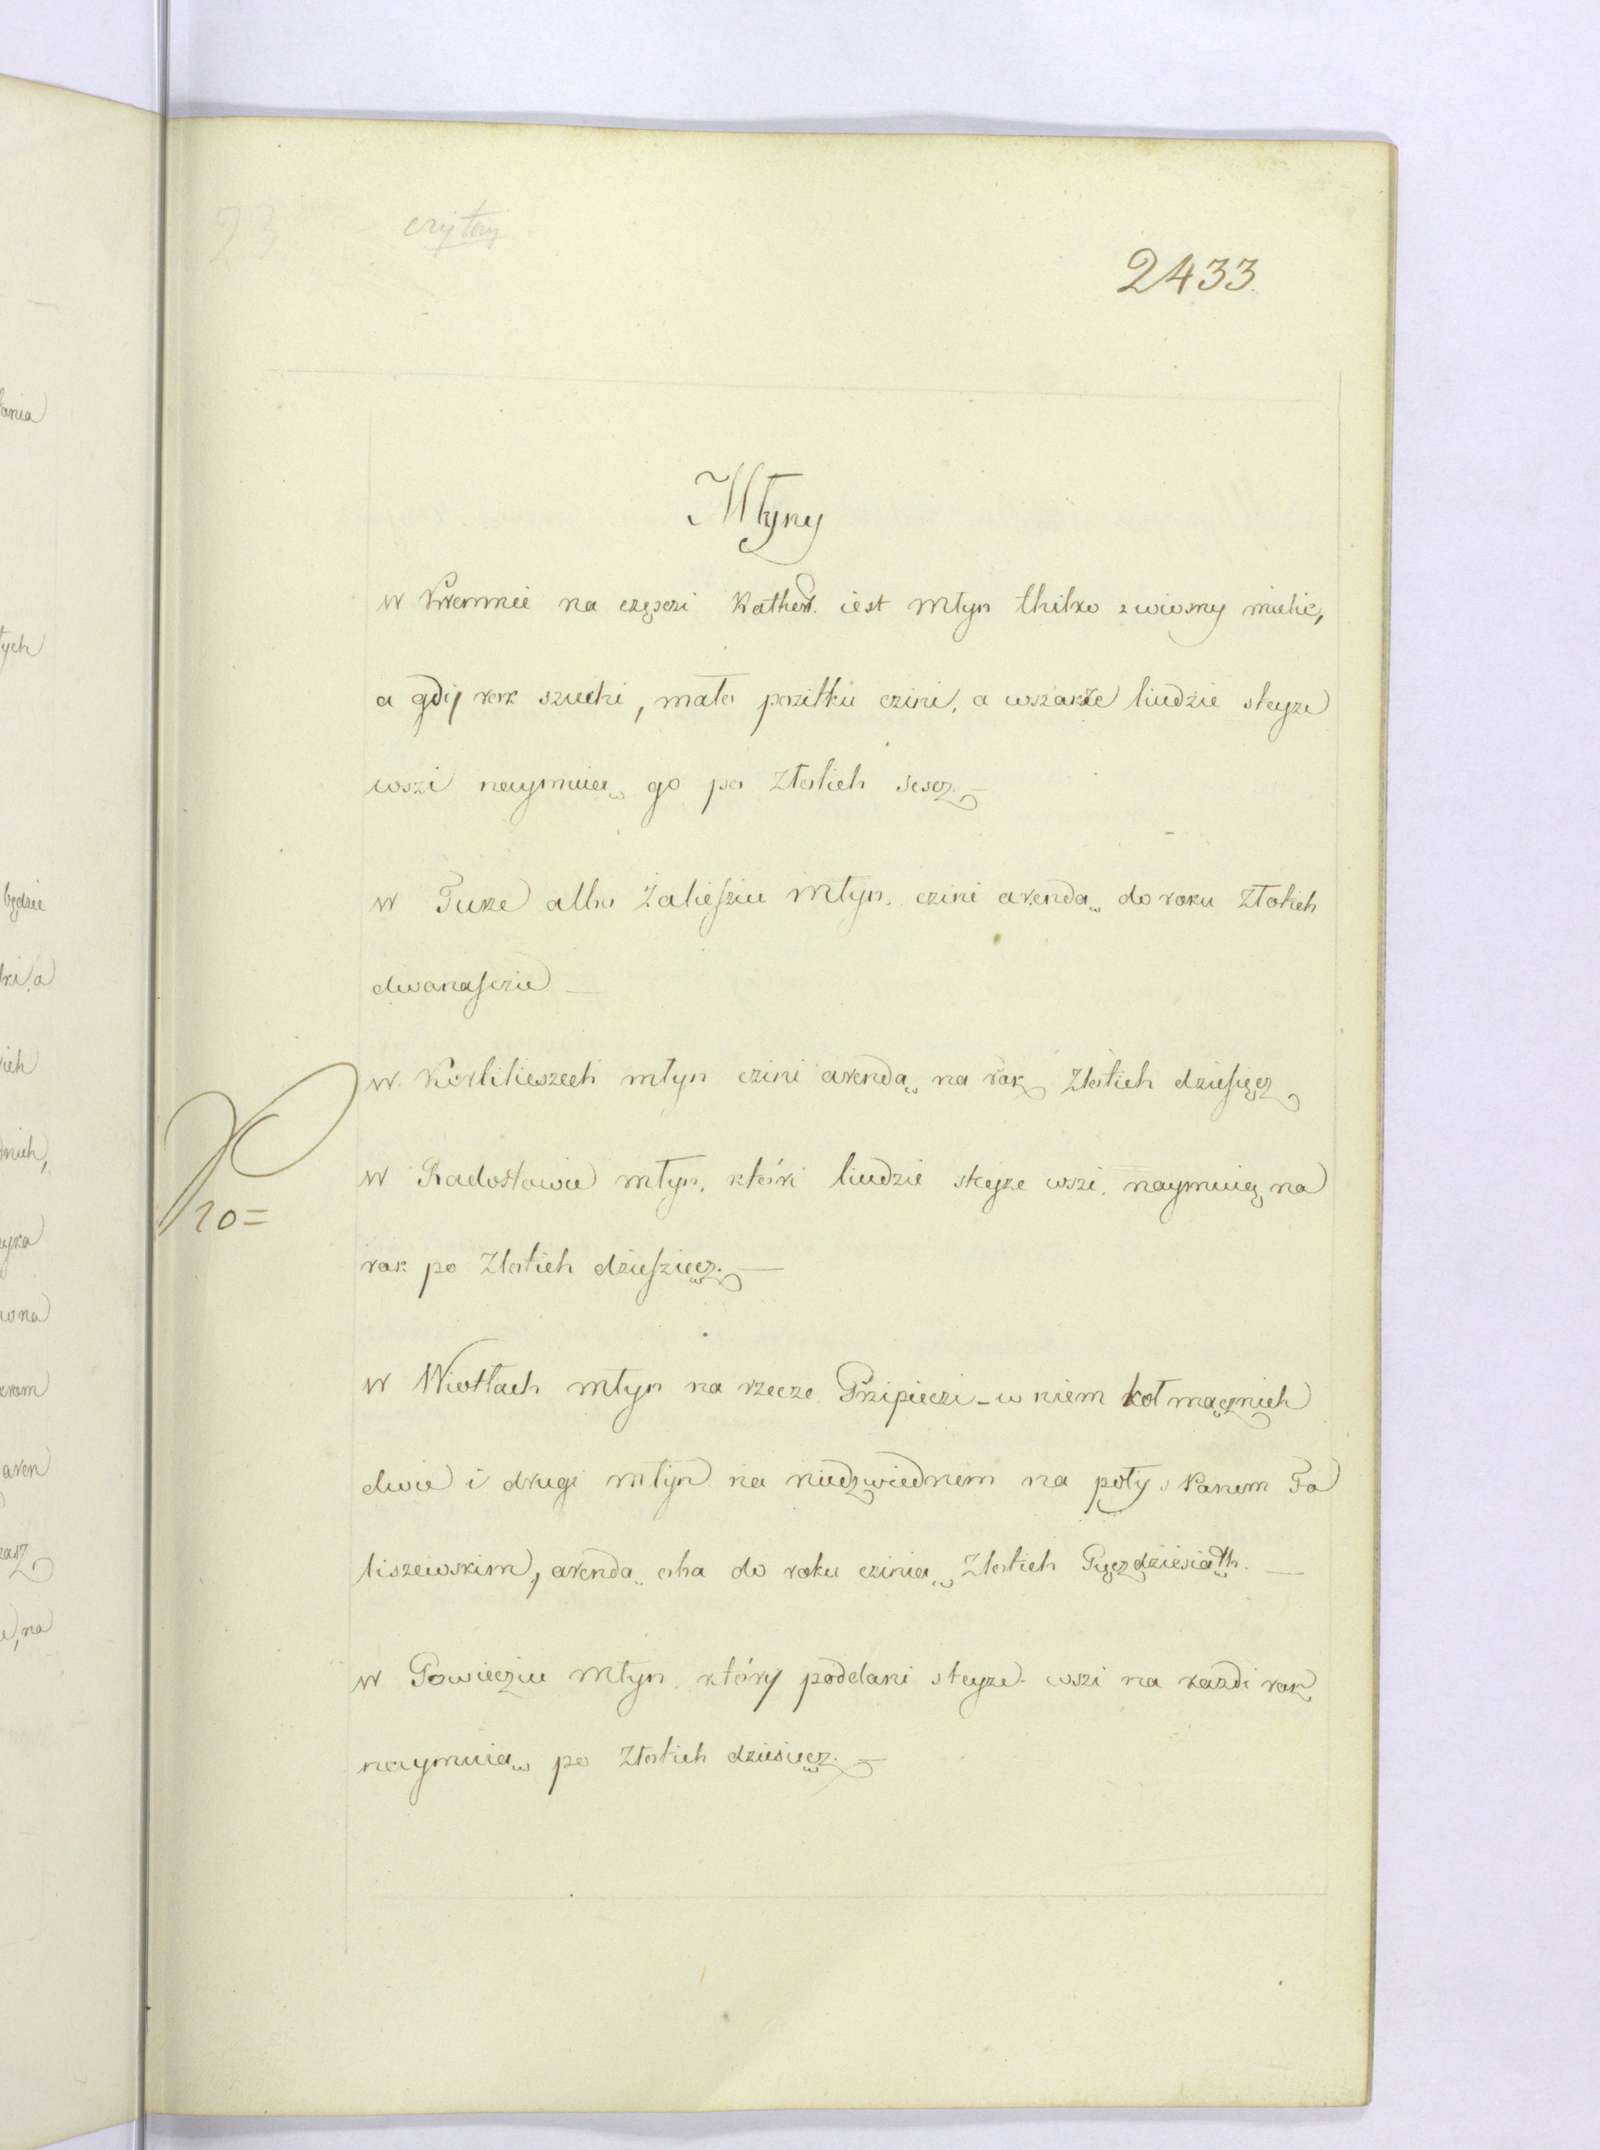 czytany
2433.
Młyny
w Kremnie na częsczi Kather. iest młyn thilko z wiosny mielie,
a gdij rok szuchi, mało pozitku czini, a wszakże liudzie steyze
wszi naymuią go po Złotich sescz
w Turze albo Zaliesziu młyn. czini arendą do roku Złotich
dwanasczie —
w Kortiliszech młyn czini arendą na rok Złotich dziesięcz
w Radostowie młyn, któri liudzie steyze wszi, naymuią na
rok po Złotich dzieszięcz. —
w Wiotłach młyn na rzecze Pripieczi - w niem koł mącznich
dwie i drugi młyn na niedzwiednem na poły s Panem Fa
liszewskim, arendą oba do roku czinią Złotich Pięczdziesiąth. —
w Powieczju młyn. który poddani steyze. wszi na każdi rok
naymuią po Złotich dziesięcz. —
20=
łania
łych
będzie
ki, a
ich
dnich,
wna
krom
aren
e, na